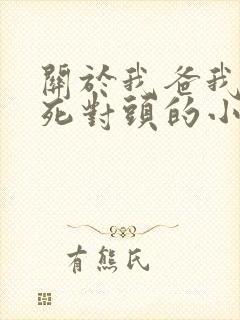 關於我爸我
死對頭的小
有熊氏